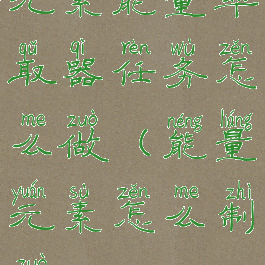 元素能量单
qǔ qì rèn wù zěn
取器任务怎
me zuò néng liáng
么做（能量
yuán sù zěn me zhì
元素怎么制
zuò